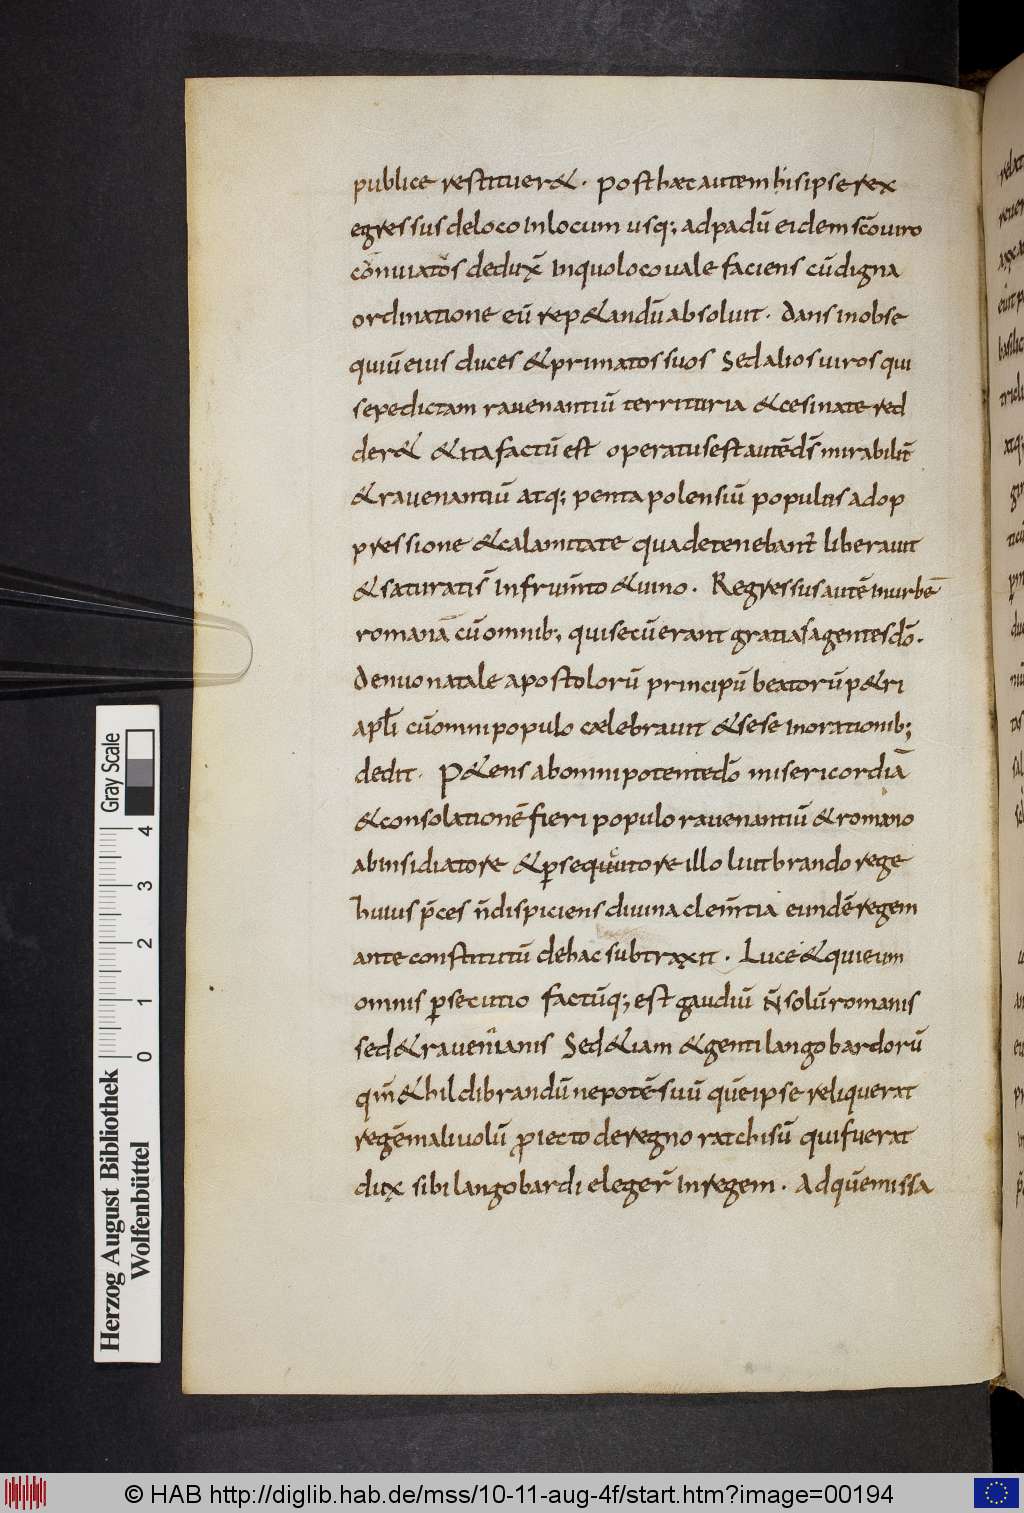 publice restituer&. post hæc autem his ipse rex
egressus de loco in locum usq; ad padū eidem scō uiro
cōnuiatōs deduxˉ in quo loco uale faciens cū digna
ordinatione eū rep&andū absoluit. dans in obse
quiū eius duces & primatos suos Sed alios uiros qui
sepedictam rauenantiū territuria & cesinate red
der& & ita factū est operatus est autē ds̄ mirabilit̄
& rauenantiū atq; pentapolensiū populus ad op
pressione & calamitate qua detenebant̄ liberauit
& saturati s̄ in frum̄to & uino. Regressus autē in urbē
romanā cū omnib; qui secū erant gratias agentes dō.
denuo natale apostolorū principū beatorū p&ri
apłi cū omni populo cælebrauit & sese in orationib;
dedit. P&ens ab omnipotente dō misericordiā
& consolationē fieri populo rauenantiū & romano
ab insidiatore & p̱sequutore illo luitbrando rege
huius p̄ces n̄ dispiciens diuina clem̄tia eundē regem
ante constitutū de hac subtraxit. Luce & quieuin
omnis p̱secutio factūq; est gaudiū N̄ solū romanis
sed & rauennianis Sed &iam & genti langobardorū
qm̄ & hildibrandū nepotē suū quē ipse reliquerat
regē maliuolū ꝓiecto de regno ratchisū qui fuerat
dux sibi langobardi eleger̄ in regem. Ad quē missa
relat
Gray Scale
4
3
2
1
0
Herzog August Bibliothek
Wolfenbüttel
© HAB http://diglib.hab.de/mss/10-11-aug-4f/start.htm?image=00194